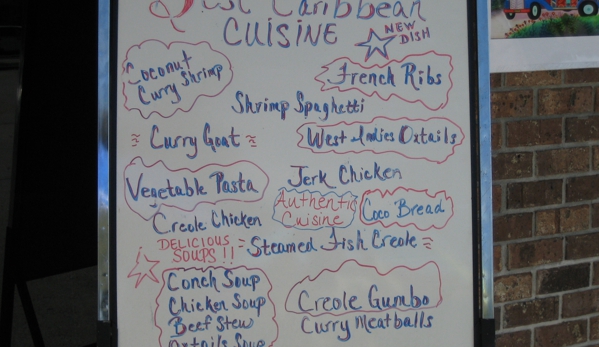 Caribbean
CUISINE
NEW
DISH
Coconut
Curry Shrimp
French Ribs
Shrimp Spaghetti
Curry Goat
West Indies Oxtails
Jerk Chicken
Vegetable Pasta
Authentic
Cuisine
Coco Bread
Creole Chicken
DELICIOUS
SOUPS!!
Steamed Fish Creole
Conch Soup
Chicken Soup
Beef Stew
Oxtails Soup
Creole Gumbo
Curry Meatballs